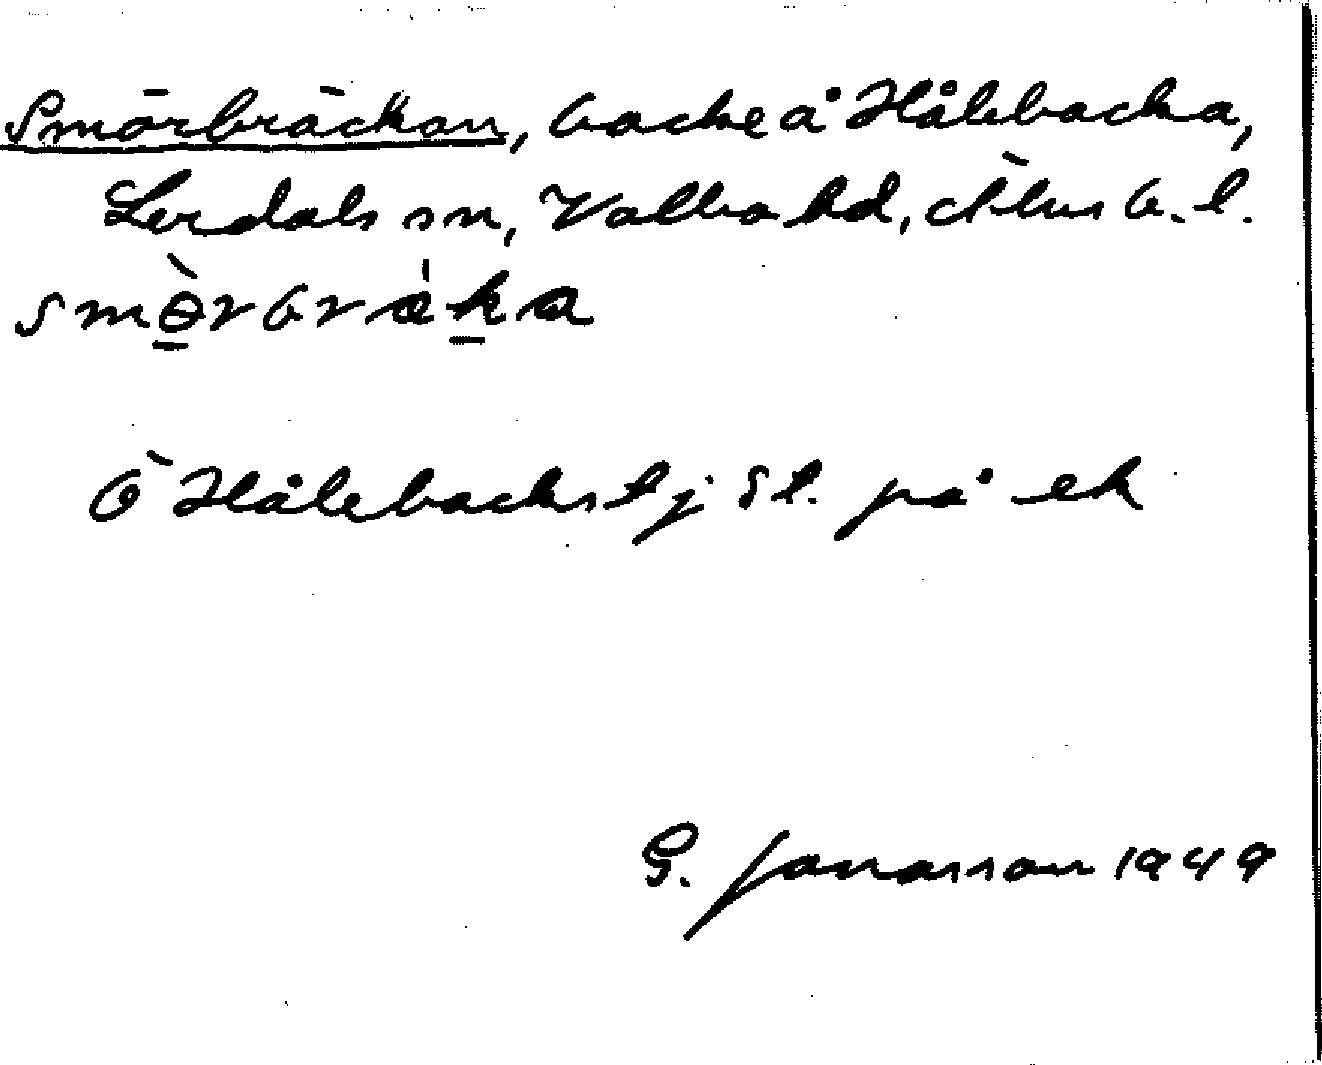 Smörbräckan, backe å Hålebacka,
Lerdals sn, Valbo hd, Älvsb. l.
smɵ̀rbrǽka
Ö Hålebackstj St. på ek
G. Jonasson 1949